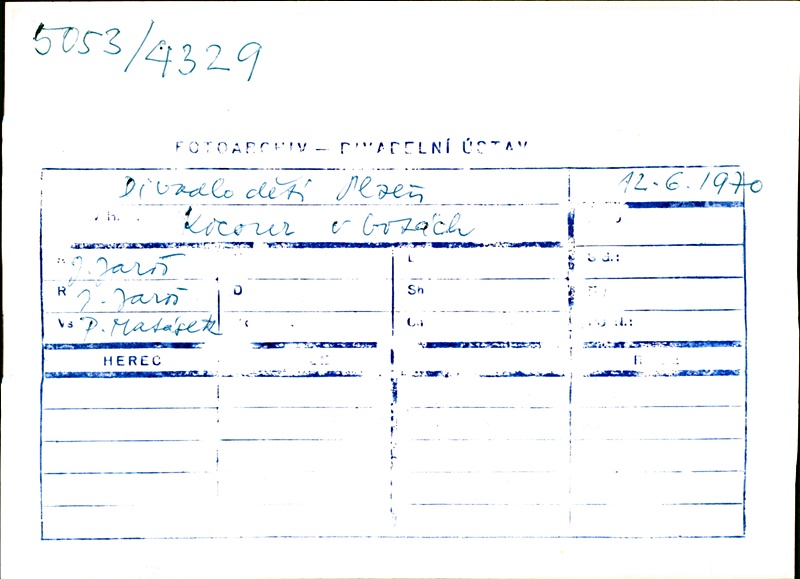 5053/4329
FOTOARCHIV – DIVADELNÍ ÚSTAV
Divadlo dětí Plzeň 12.6.1970
Kocour v botách
J. Jaroš L
R J. Jaroš D Sh
Vs P. Matásek
HEREC